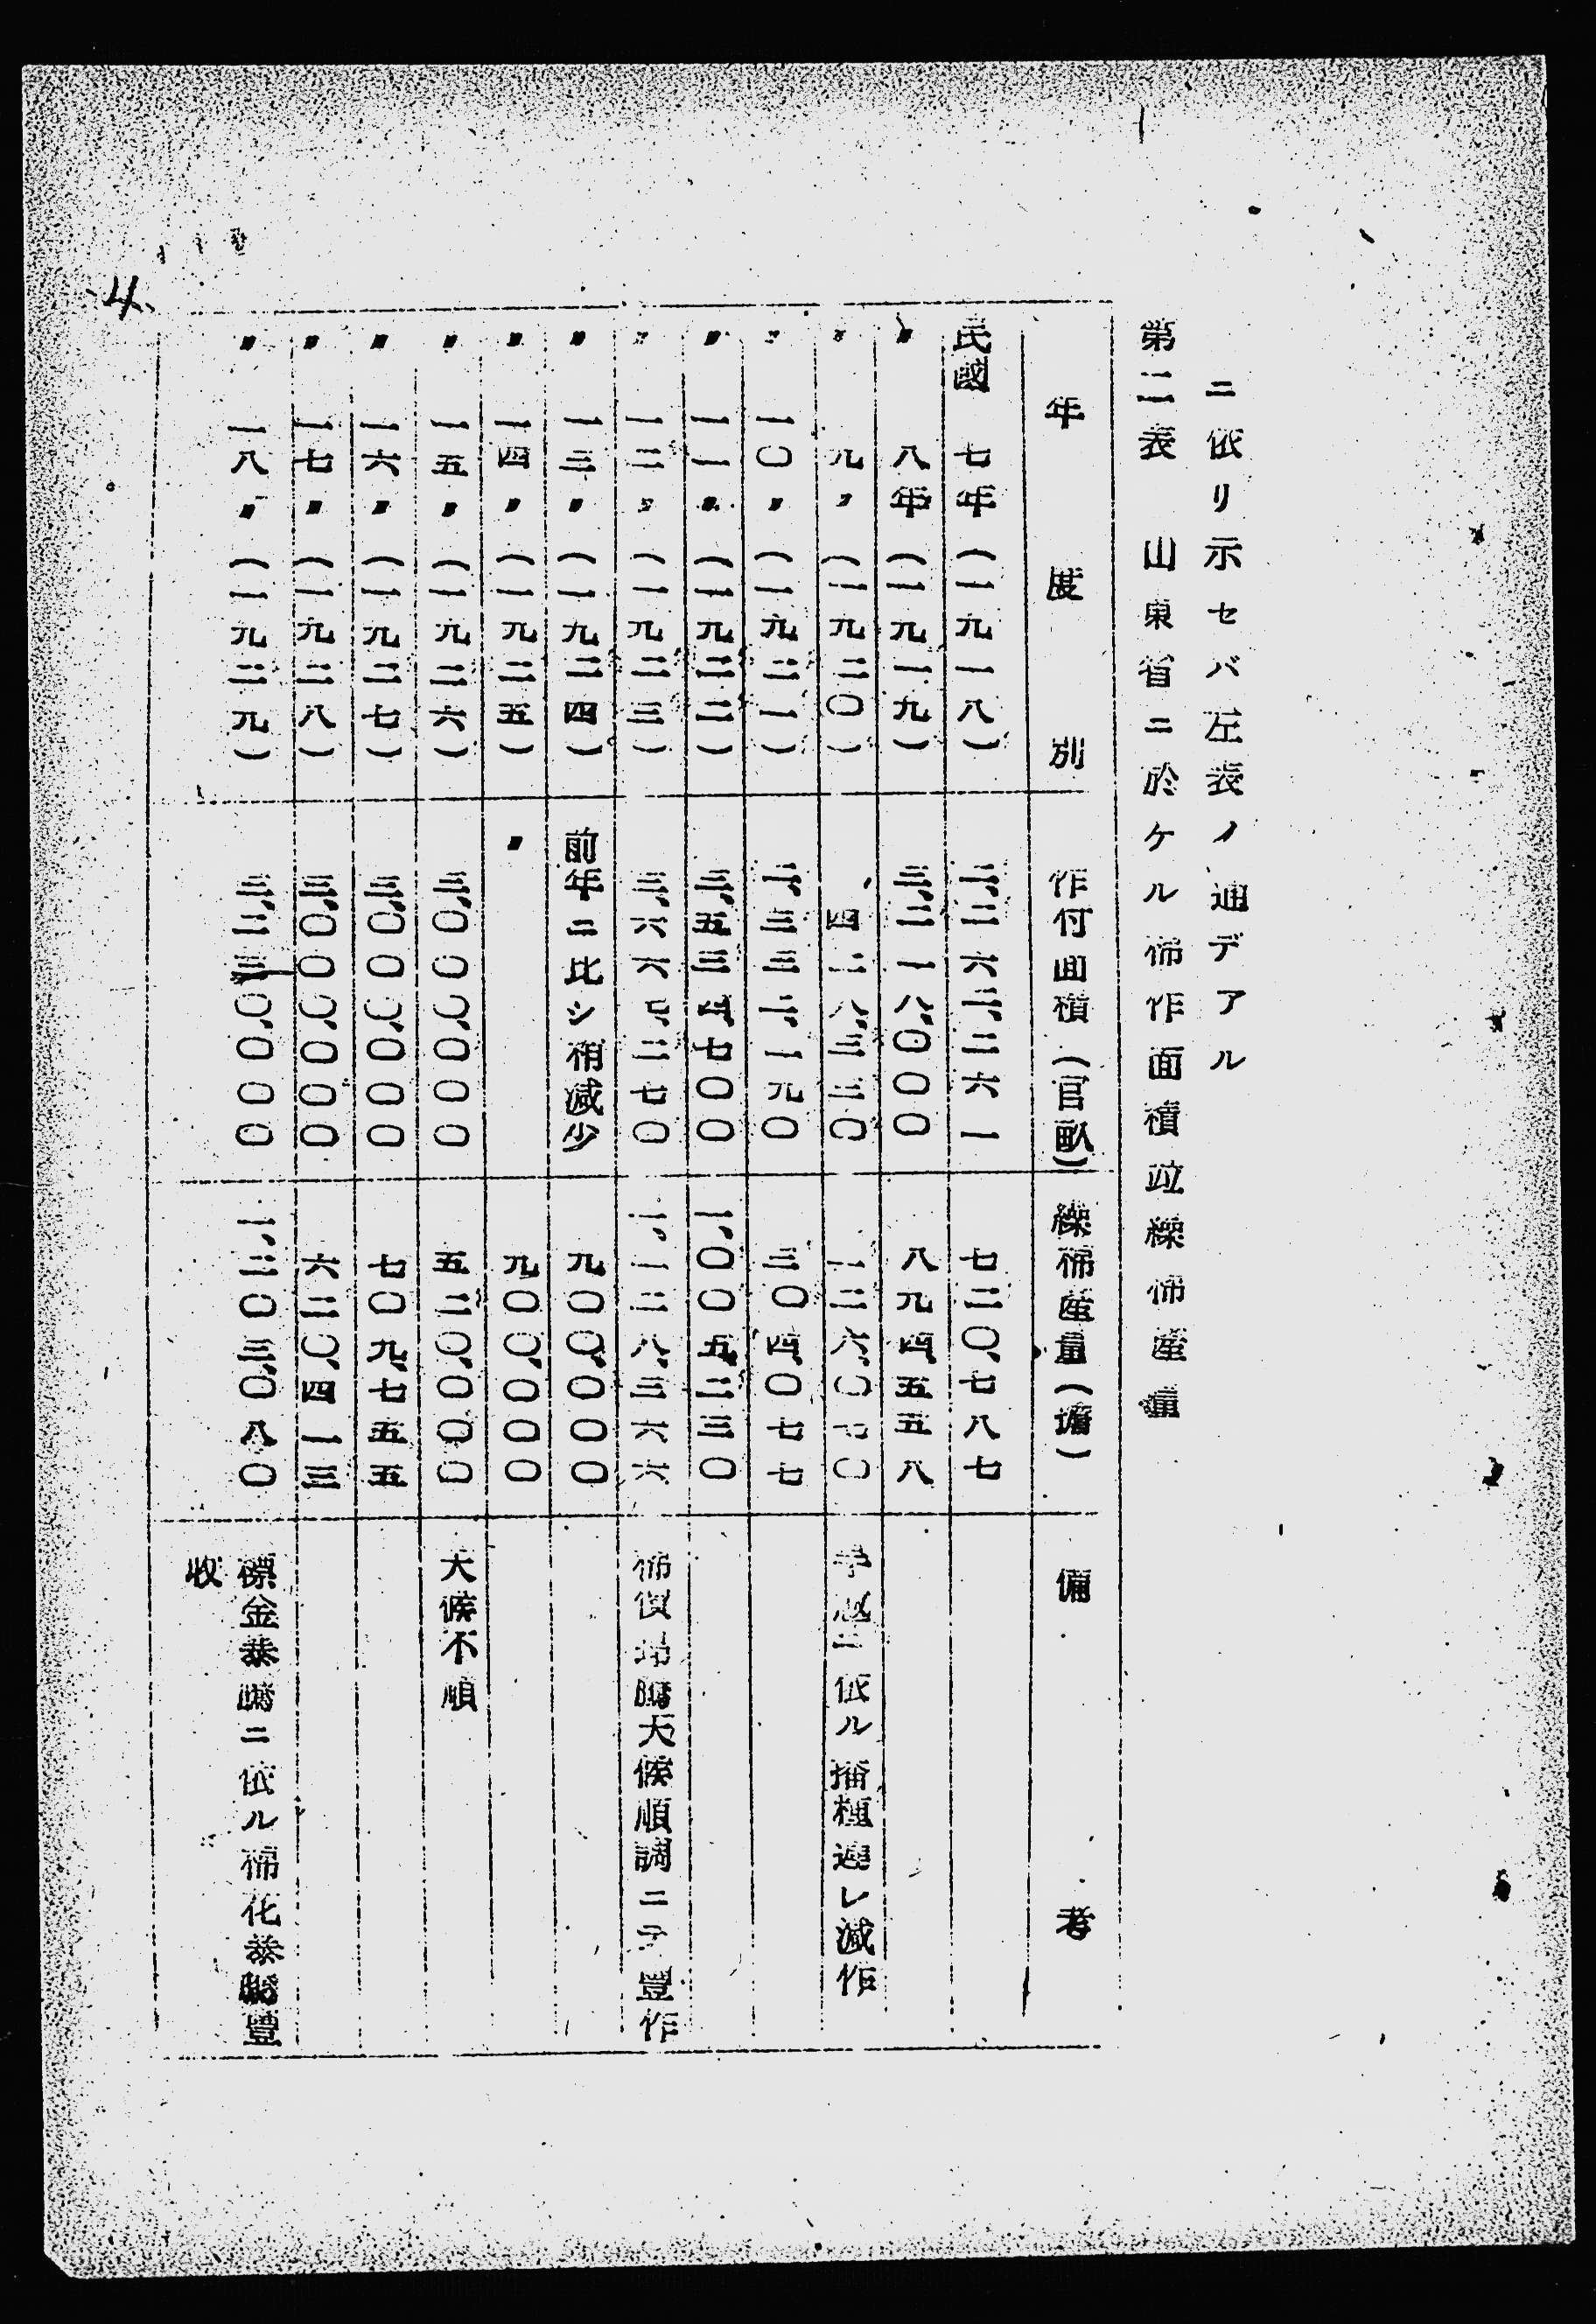 ニ依リ示セバ左表ノ通デアル
第二表 山東省ニ於ケル棉作面積竝繰棉産量
年度別 作付面積(官畝) 繰棉産量(擔) 備考
民國 七年(一九一八) 二、二六二、二六一 七二〇、七八七
〃 八年(一九一九) 三、二一八、〇〇〇 八九四、五五八
〃 九〃(一九二〇) 四二八、三三〇 一二六、〇七〇 旱魃ニ依ル播種遲レ減作
〃 一〇〃(一九二一) 二、三三二、一九〇 三〇四、〇七七
〃 一一〃(一九二二) 三、五三四、七〇〇 一、〇〇五、二三〇
〃 一二〃(一九二三) 三、六六 、二七〇 一、一二八、三六六 棉價昂騰天候順調ニテ豐作
〃 一三〃(一九二四) 前年ニ比シ稍減少 九〇〇、〇〇〇
〃 一四〃(一九二五) 〃 九〇〇、〇〇〇
〃 一五〃(一九二六) 三、〇〇〇、〇〇〇 五二〇、〇〇〇 天候不順
〃 一六〃(一九二七) 三、〇〇〇、〇〇〇 七〇九、七五五
〃 一七〃(一九二八) 三、〇〇〇、〇〇〇 六二〇、四一三
〃 一八〃(一九二九) 三、二三〇、〇〇〇 一、二〇三、〇八〇 標金暴騰ニ依ル棉花暴騰豐
收
4